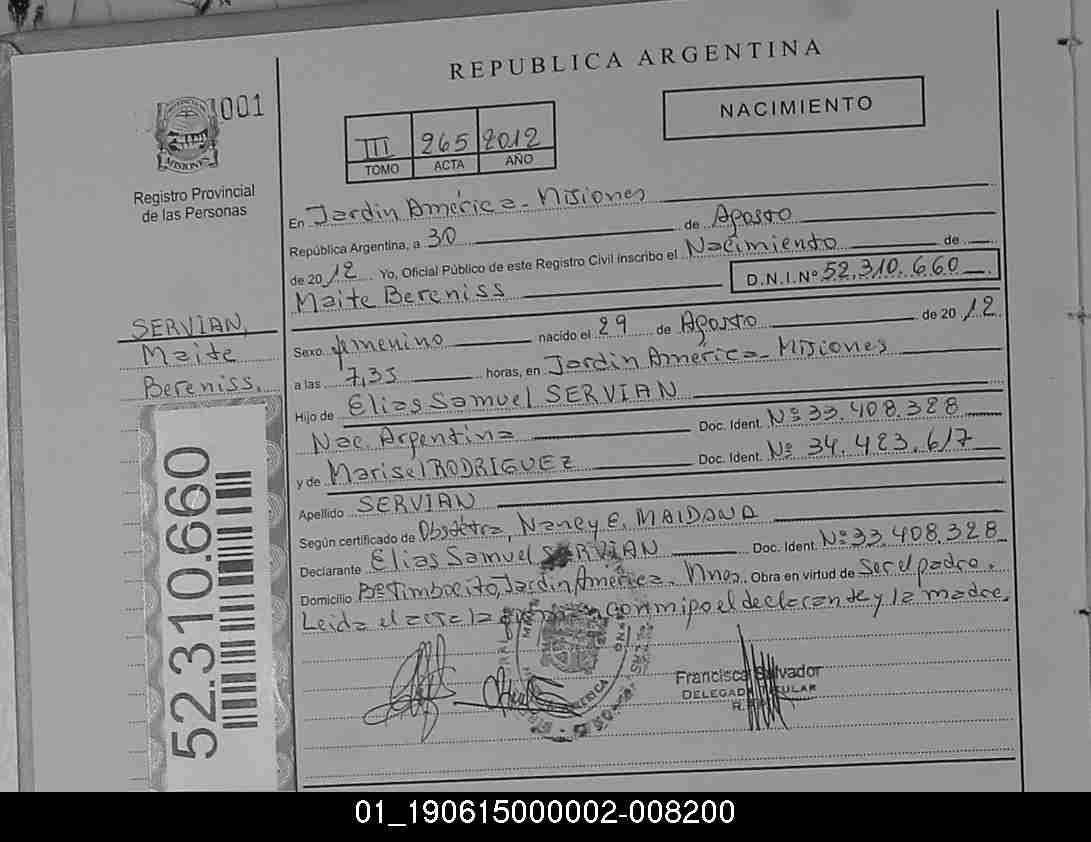 REPUBLICA ARGENTINA
001
NACIMIENTO
III 265 2012
TOMO ACTA AÑO
MISIONES
Registro Provincial
de las Personas
En Jardin América - Misiones
República Argentina, a 30 de Agosto
de 2012 Yo, Oficial Público de este Registro Civil inscribo el Nacimiento de
Maite Bereniss D.N.I.Nº 52.310.660
SERVIAN,
Maite
Bereniss.
Sexo femenino nacido el 29 de Agosto de 2012
a las 7,35 horas, en Jardin América - Misiones
Hijo de Elias Samuel SERVIAN
Nac. Argentina Doc. Ident. Nº 33.408.328
y de Marisel RODRIGUEZ Doc. Ident. Nº 34.423.617
Apellido SERVIAN
Según certificado de Obstétra, Nancy E. MAIDANA
Declarante Elias Samuel SERVIAN Doc. Ident. Nº 33.408.328
Domicilio Bº Timbocito, Jardin América, Mnes. Obra en virtud de Ser el padre.
Leida el acta la conmigo el declarante y la madre.
52.310.660
Francisca Salvador
DELEGADA TITULAR
01_190615000002-008200